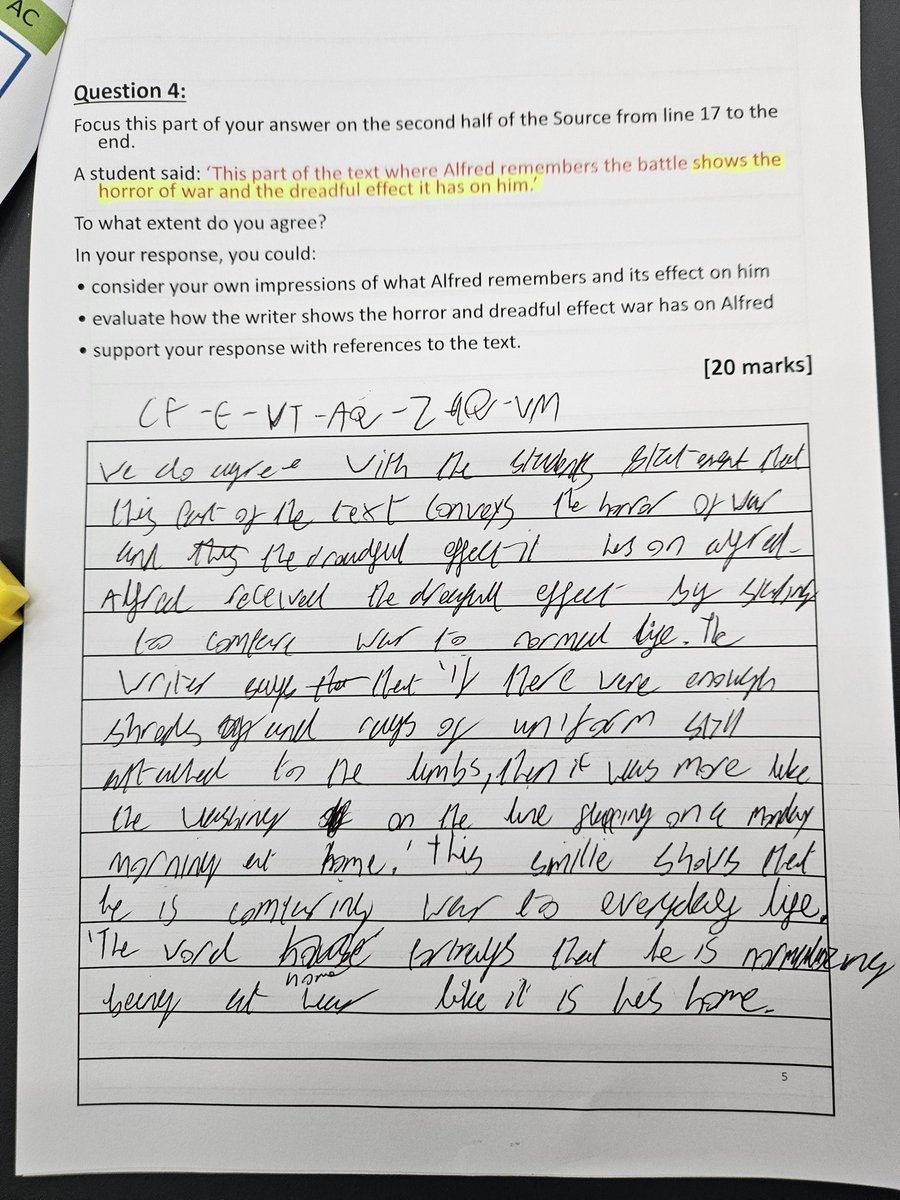 AC
Question 4:
Focus this part of your answer on the second half of the Source from line 17 to the
end.
A student said: ‘This part of the text where Alfred remembers the battle shows the
horror of war and the dreadful effect it has on him.’
To what extent do you agree?
In your response, you could:
• consider your own impressions of what Alfred remembers and its effect on him
• evaluate how the writer shows the horror and dreadful effect war has on Alfred
• support your response with references to the text.
[20 marks]
CF - E - WT - AQ - Z - VM
We do agree with the students statement that
this part of the text conveys the horror of war
and the dreadful effect it has on alfred.
Alfred received the dreafull effect by
to compare war to normal life. The
writer says that 'if there were enough
shreds and rags of uniform still
attached to the limbs, then it was more like
the washing on the line flapping on a monday
morning at home.' This smille shows that
he is comparing war to everyday life.
'The word home portrays that he is
being at war like it is his home.
5